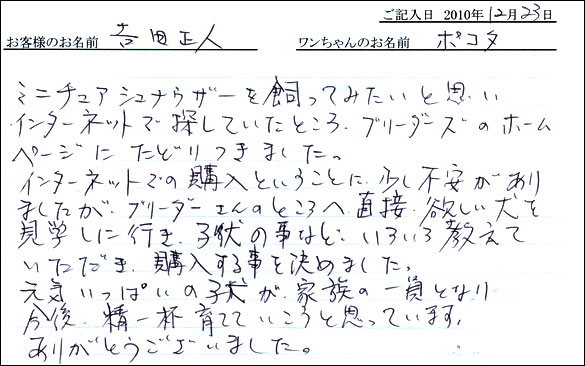 ご記入日 2010年12月23日
お客様のお名前 吉田正人 ワンちゃんのお名前 ポコタ
ミニチュアシュナウザーを飼ってみたいと思い
インターネットで探していたところ、ブリーダーズのホーム
ページにたどりつきました。
インターネットでの購入ということに、少し不安があり
ましたが、ブリーダーさんのところへ直接、欲しい犬を
見学しに行き、子犬の事など、いろいろ教えて
いただき、購入する事を決めました。
元気いっぱいの子犬が、家族の一員となり
今後、精一杯育てていこうと思っています。
ありがとうございました。